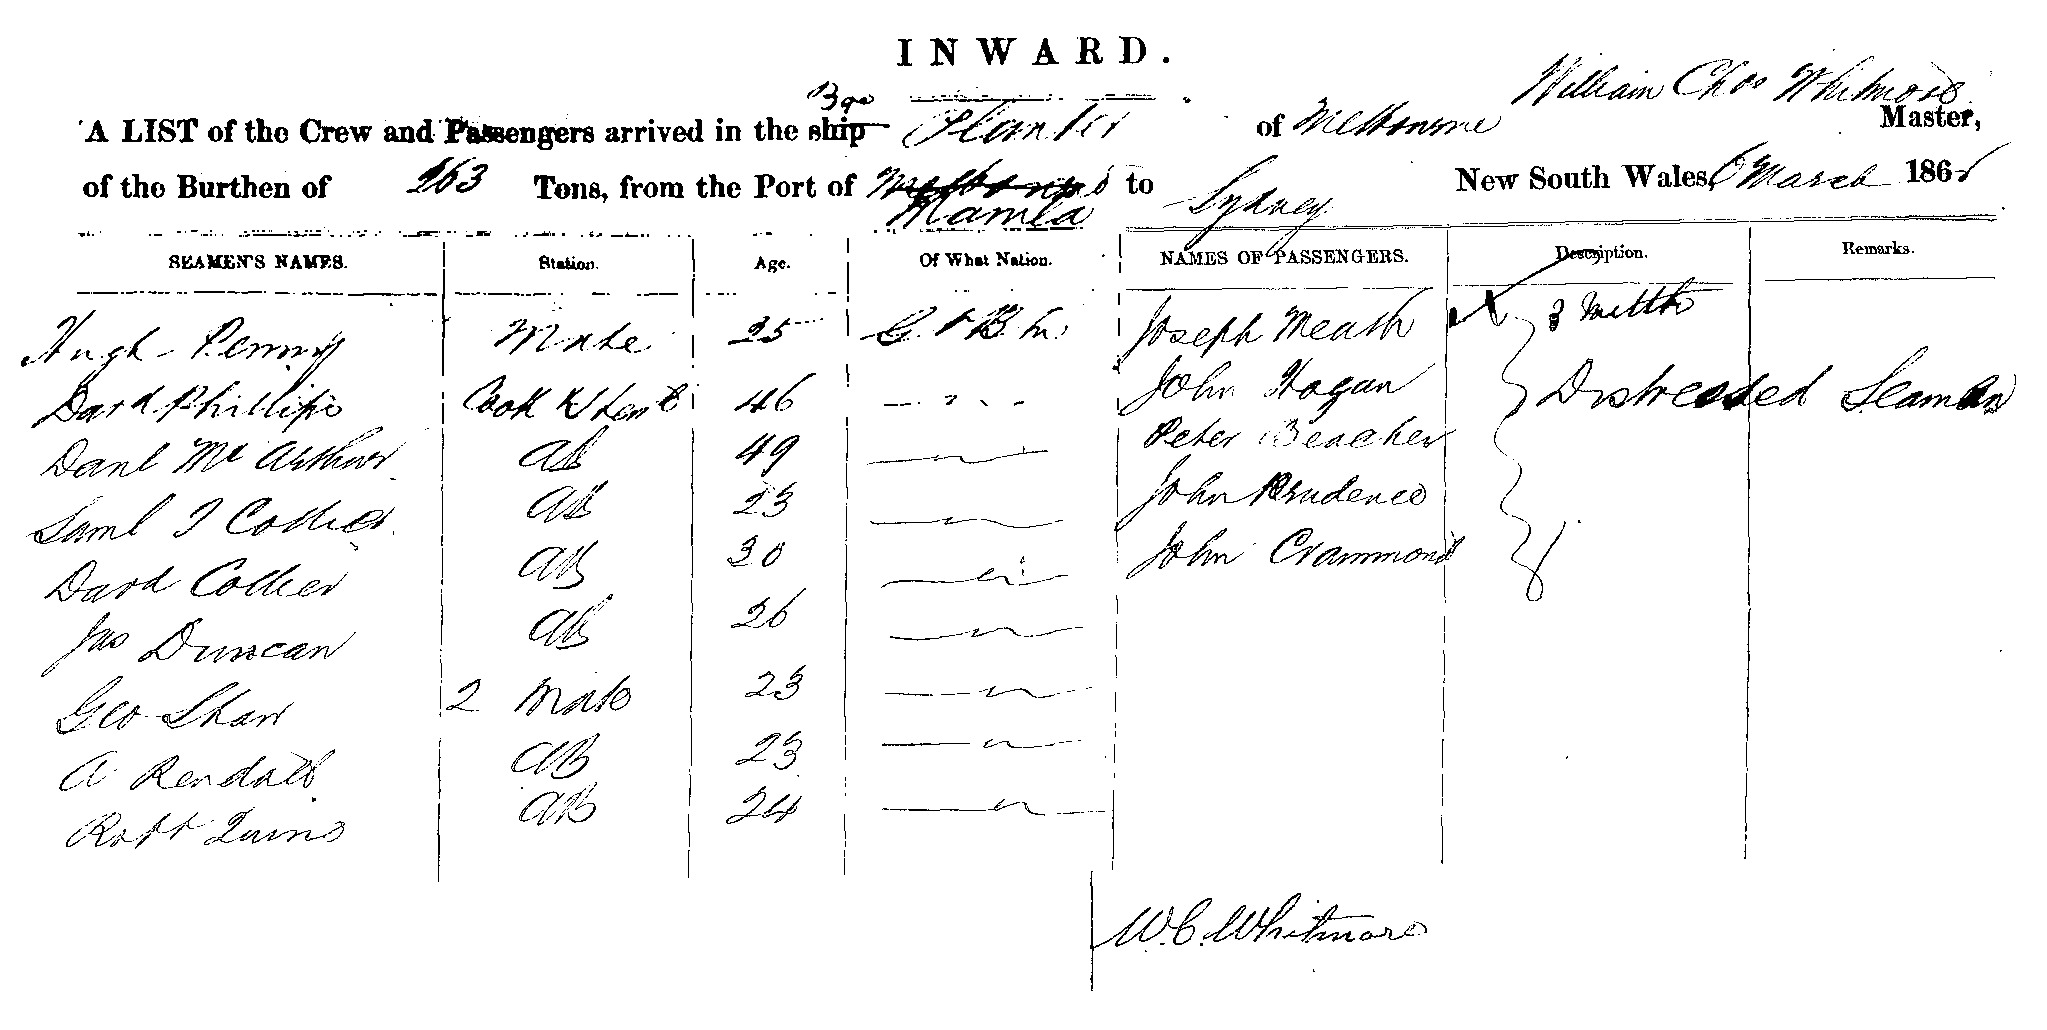 INWARD.
William Chas Whitmore
Bqe
A LIST of the Crew and Passengers arrived in the ship Planter of Melbourne Master,
of the Burthen of 263 Tons, from the Port of Melbourne to Sydney New South Wales, 6 March 186
Manila
SEAMEN'S NAMES. Station. Age. Of What Nation. NAMES OF PASSENGERS. Description. Remarks.
Hugh Penny Mate 25 G. Joseph Meath X
David Phillips Cook & Stewd 46 John Hogan Distressed Seamen
Danl Mc Arthur AB 49 Peter Beacher
Saml J Collier AB 23 John Prudence
David Collier AB 30 John Crammond
Jas Duncan AB 26
Geo Shaw 2 Mate 23
A Rendall AB 23
Robt AB 24
W. C. Whitmore